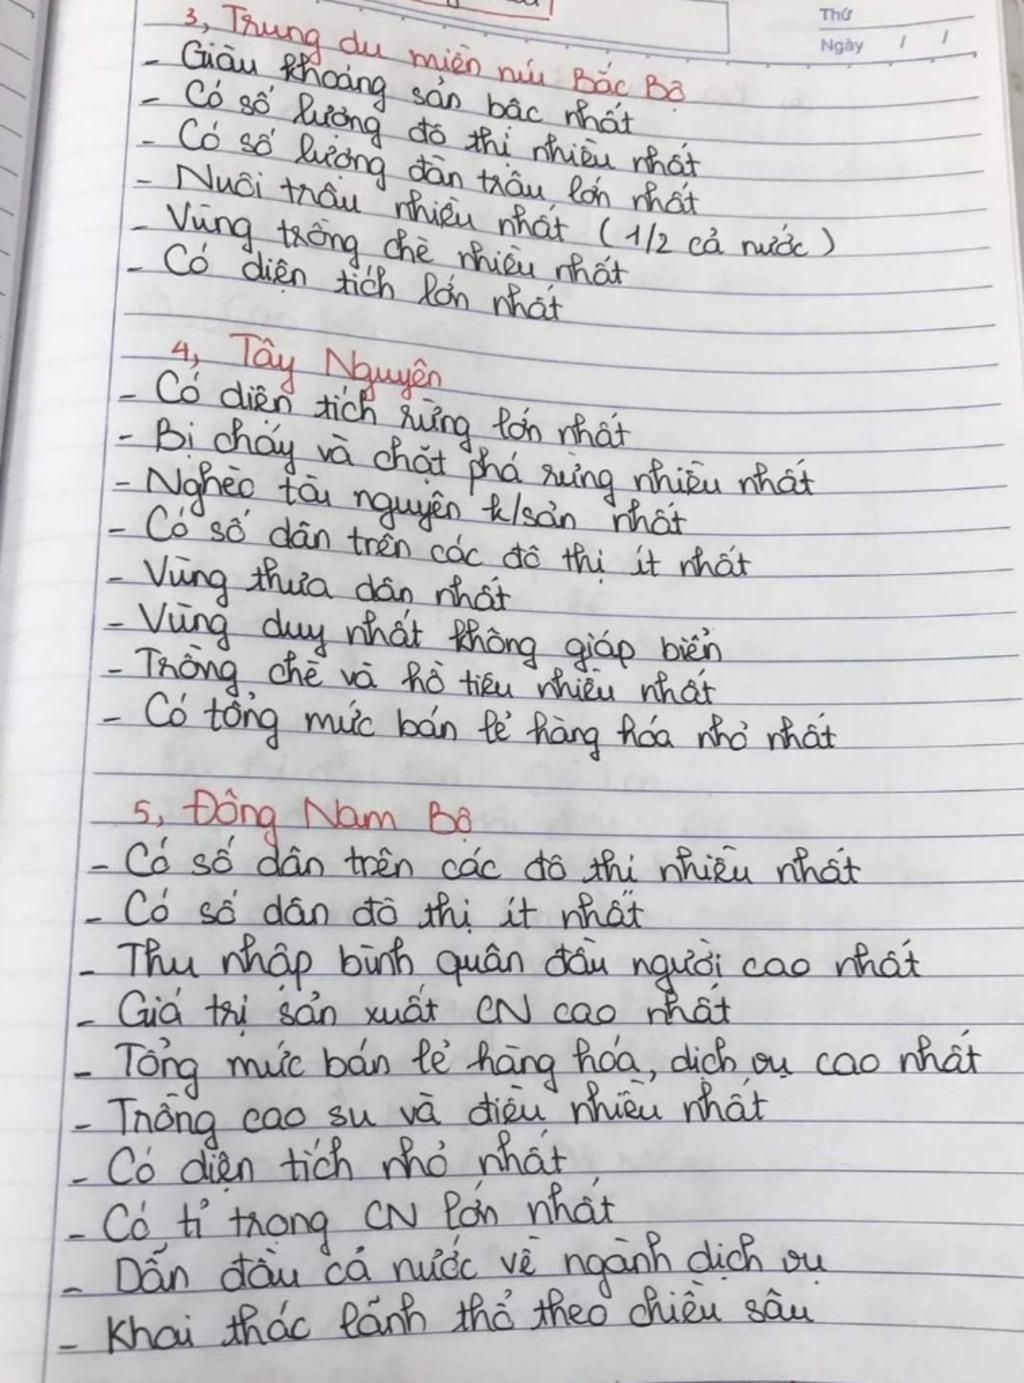 Thứ
Ngày / /
3, Trung du miền núi Bắc Bộ
- Giàu khoáng sản bậc nhất
- Có số lượng đô thị nhiều nhất
- Có số lượng đàn trâu lớn nhất
- Nuôi trâu nhiều nhất (1/2 cả nước)
- Vùng trồng chè nhiều nhất
- Có diện tích lớn nhất
4, Tây Nguyên
- Có diện tích rừng lớn nhất
- Bị cháy và chặt phá rừng nhiều nhất
- Nghèo tài nguyên k/sản nhất
- Có số dân trên các đô thị ít nhất
- Vùng thưa dân nhất
- Vùng duy nhất không giáp biển
- Trồng chè và hồ tiêu nhiều nhất
- Có tổng mức bán lẻ hàng hóa nhỏ nhất
5, Đông Nam Bộ
- Có số dân trên các đô thị nhiều nhất
- Có số dân đô thị ít nhất
- Thu nhập bình quân đầu người cao nhất
- Giá trị sản xuất CN cao nhất
- Tổng mức bán lẻ hàng hóa, dịch vụ cao nhất
- Trồng cao su và điều nhiều nhất
- Có diện tích nhỏ nhất
- Có tỉ trọng CN lớn nhất
- Dẫn đầu cả nước về ngành dịch vụ
- Khai thác lãnh thổ theo chiều sâu